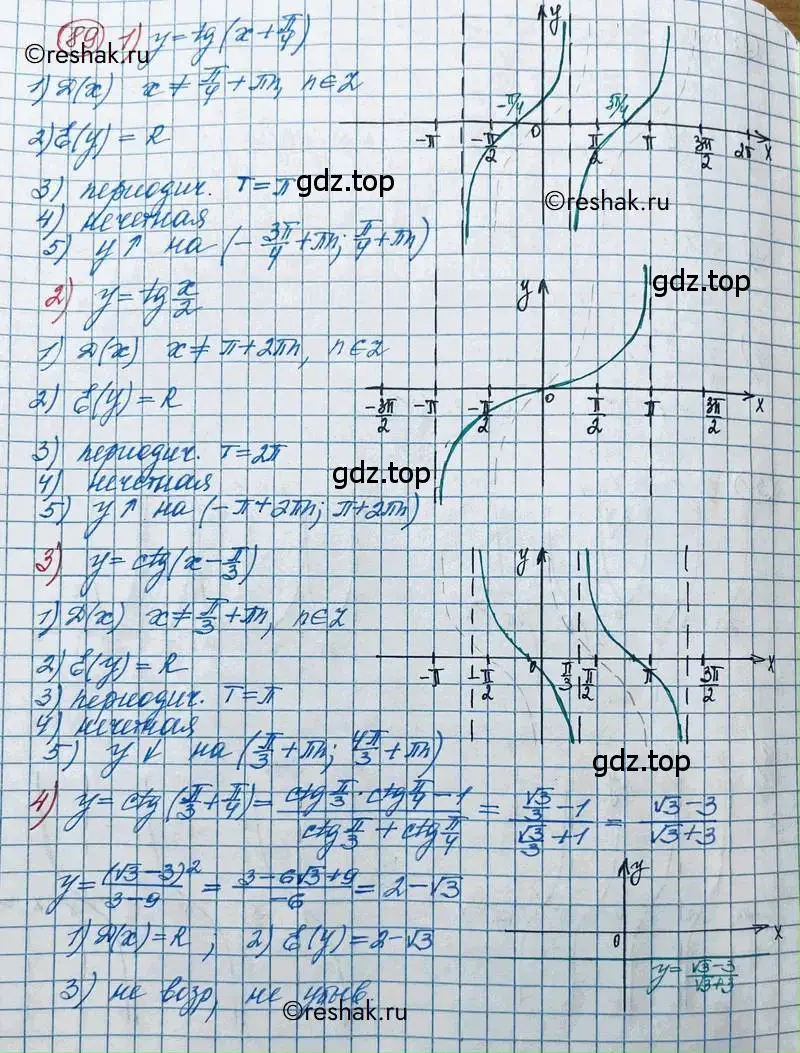 89 1) y = tg (x + π/4)
©reshak.ru
1) D(x) x ≠ π/4 + πn, n ∈ Z
2) E(y) = R
3) периодич. T = π
gdz.top
4) нечетная
5) y ↑ на (-3π/4 + πn; π/4 + πn)
y
-π/4 3π/4
-π -π/2 0 π/2 π 3π/2 2π x
©reshak.ru
2) y = tg x/2
gdz.top
1) D(x) x ≠ π + 2πn, n ∈ Z
2) E(y) = R
3) периодич. T = 2π
4) нечетная
gdz.top
5) y ↑ на (-π + 2πn; π + 2πn)
y
-3π/2 -π -π/2 0 π/2 π 3π/2 x
3) y = ctg (x - π/3)
1) D(x) x ≠ π/3 + πn, n ∈ Z
2) E(y) = R
3) периодич. T = π
4) нечетная
5) y ↓ на (π/3 + πn; 4π/3 + πn)
y
-π -π/2 0 π/3 π/2 π 3π/2 x
gdz.top
4) y = ctg (π/3 + π/4) = (ctg π/3 · ctg π/4 - 1)/(ctg π/3 + ctg π/4) = (√3/3 - 1)/(√3/3 + 1) = (√3 - 3)/(√3 + 3)
y = (√3 - 3)²/(3 - 9) = (3 - 6√3 + 9)/(-6) = 2 - √3
1) D(x) = R; 2) E(y) = 2 - √3
3) не возр, не убыв
©reshak.ru
y
0 x
y = (√3 - 3)/(√3 + 3)